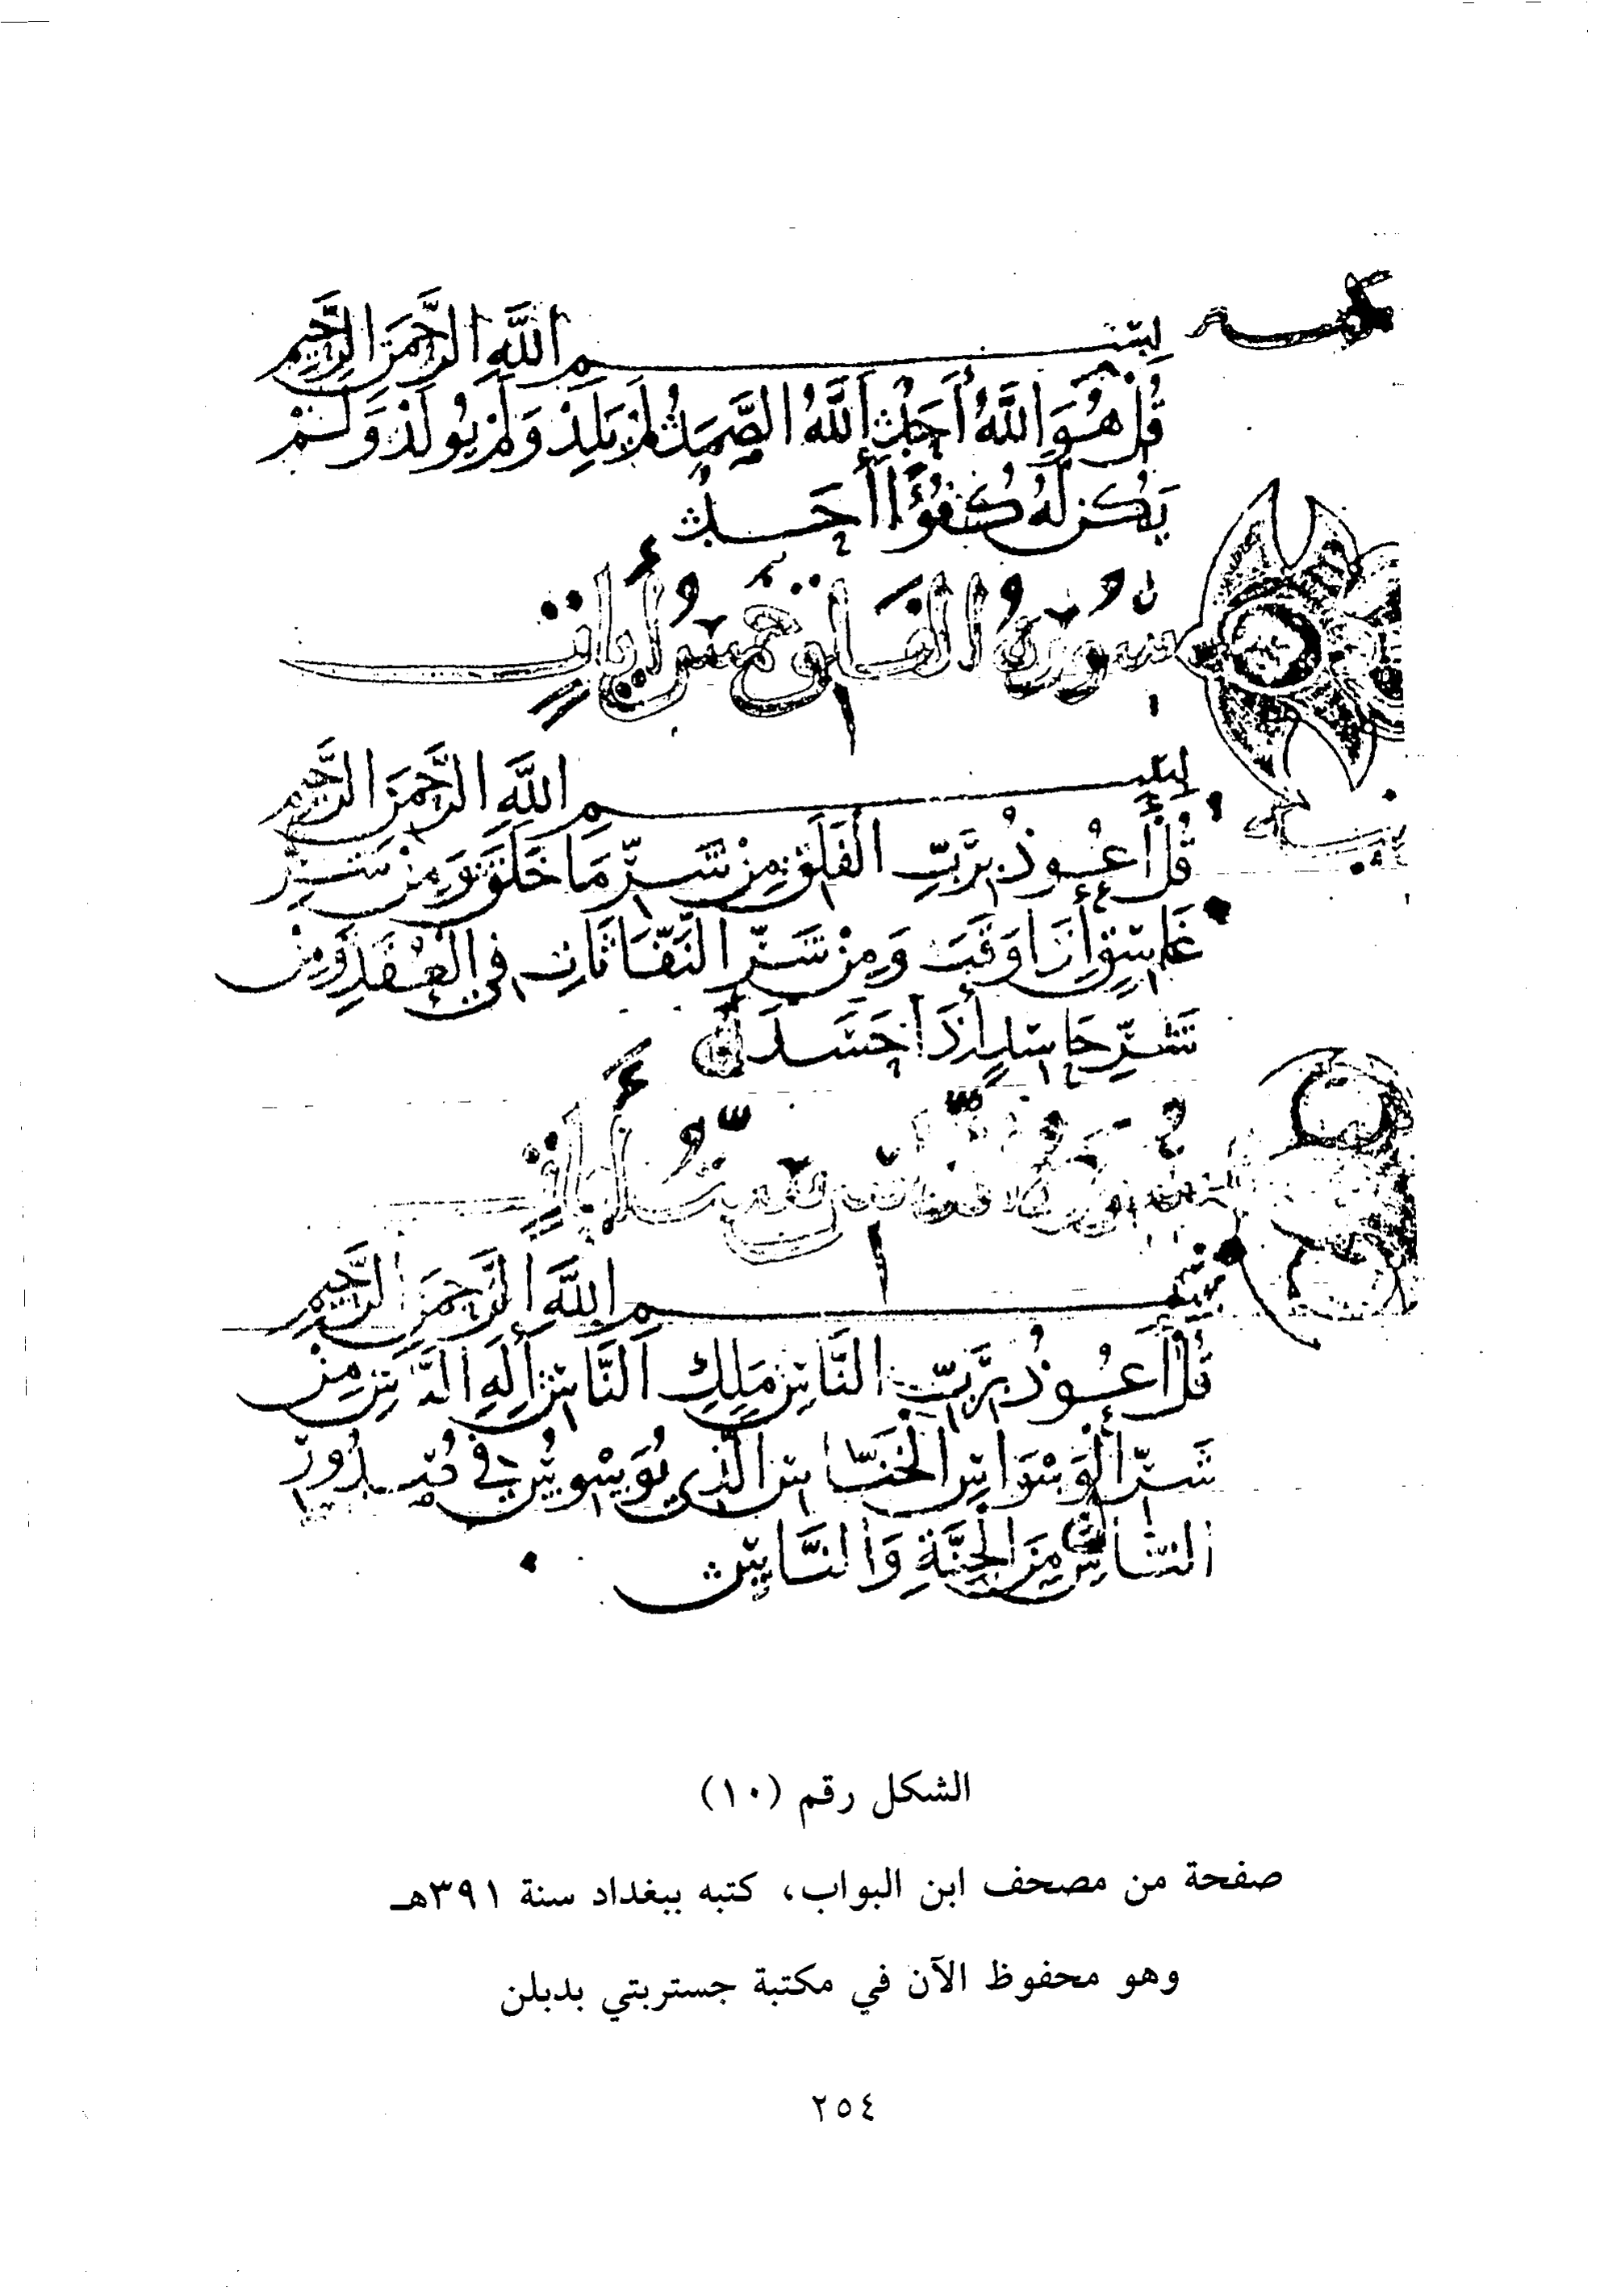 بِسْمِ اللَّهِ الرَّحْمَنِ الرَّحِيمِ
قُلْ هُوَ اللَّهُ أَحَدٌ اللَّهُ الصَّمَدُ لَمْ يَلِدْ وَلَمْ يُولَدْ وَلَمْ
يَكُنْ لَهُ كُفُؤًا أَحَدٌ
سُورَةُ الْفَلَقِ خَمْسُ أَيَاتٍ
بِسْمِ اللَّهِ الرَّحْمَنِ الرَّحِيمِ
قُلْ أَعُوذُ بِرَبِّ الْفَلَقِ مِنْ شَرِّ مَا خَلَقَ وَمِنْ شَرِّ
غَاسِقٍ إِذَا وَقَبَ وَمِنْ شَرِّ النَّفَّاثَاتِ فِي الْعُقَدِ وَمِنْ
شَرِّ حَاسِدٍ إِذَا حَسَدَ
سُورَةُ النَّاسِ سِتُّ أَيَاتٍ
بِسْمِ اللَّهِ الرَّحْمَنِ الرَّحِيمِ
قُلْ أَعُوذُ بِرَبِّ النَّاسِ مَلِكِ النَّاسِ إِلَهِ النَّاسِ مِنْ
شَرِّ الْوَسْوَاسِ الْخَنَّاسِ الَّذِي يُوَسْوِسُ فِي صُدُورِ
النَّاسِ مِنَ الْجِنَّةِ وَالنَّاسِ
الشكل رقم (١٠)
صفحة من مصحف ابن البواب، كتبه ببغداد سنة ٣٩١هـ
وهو محفوظ الآن في مكتبة جستربتي بدبلن
٢٥٤